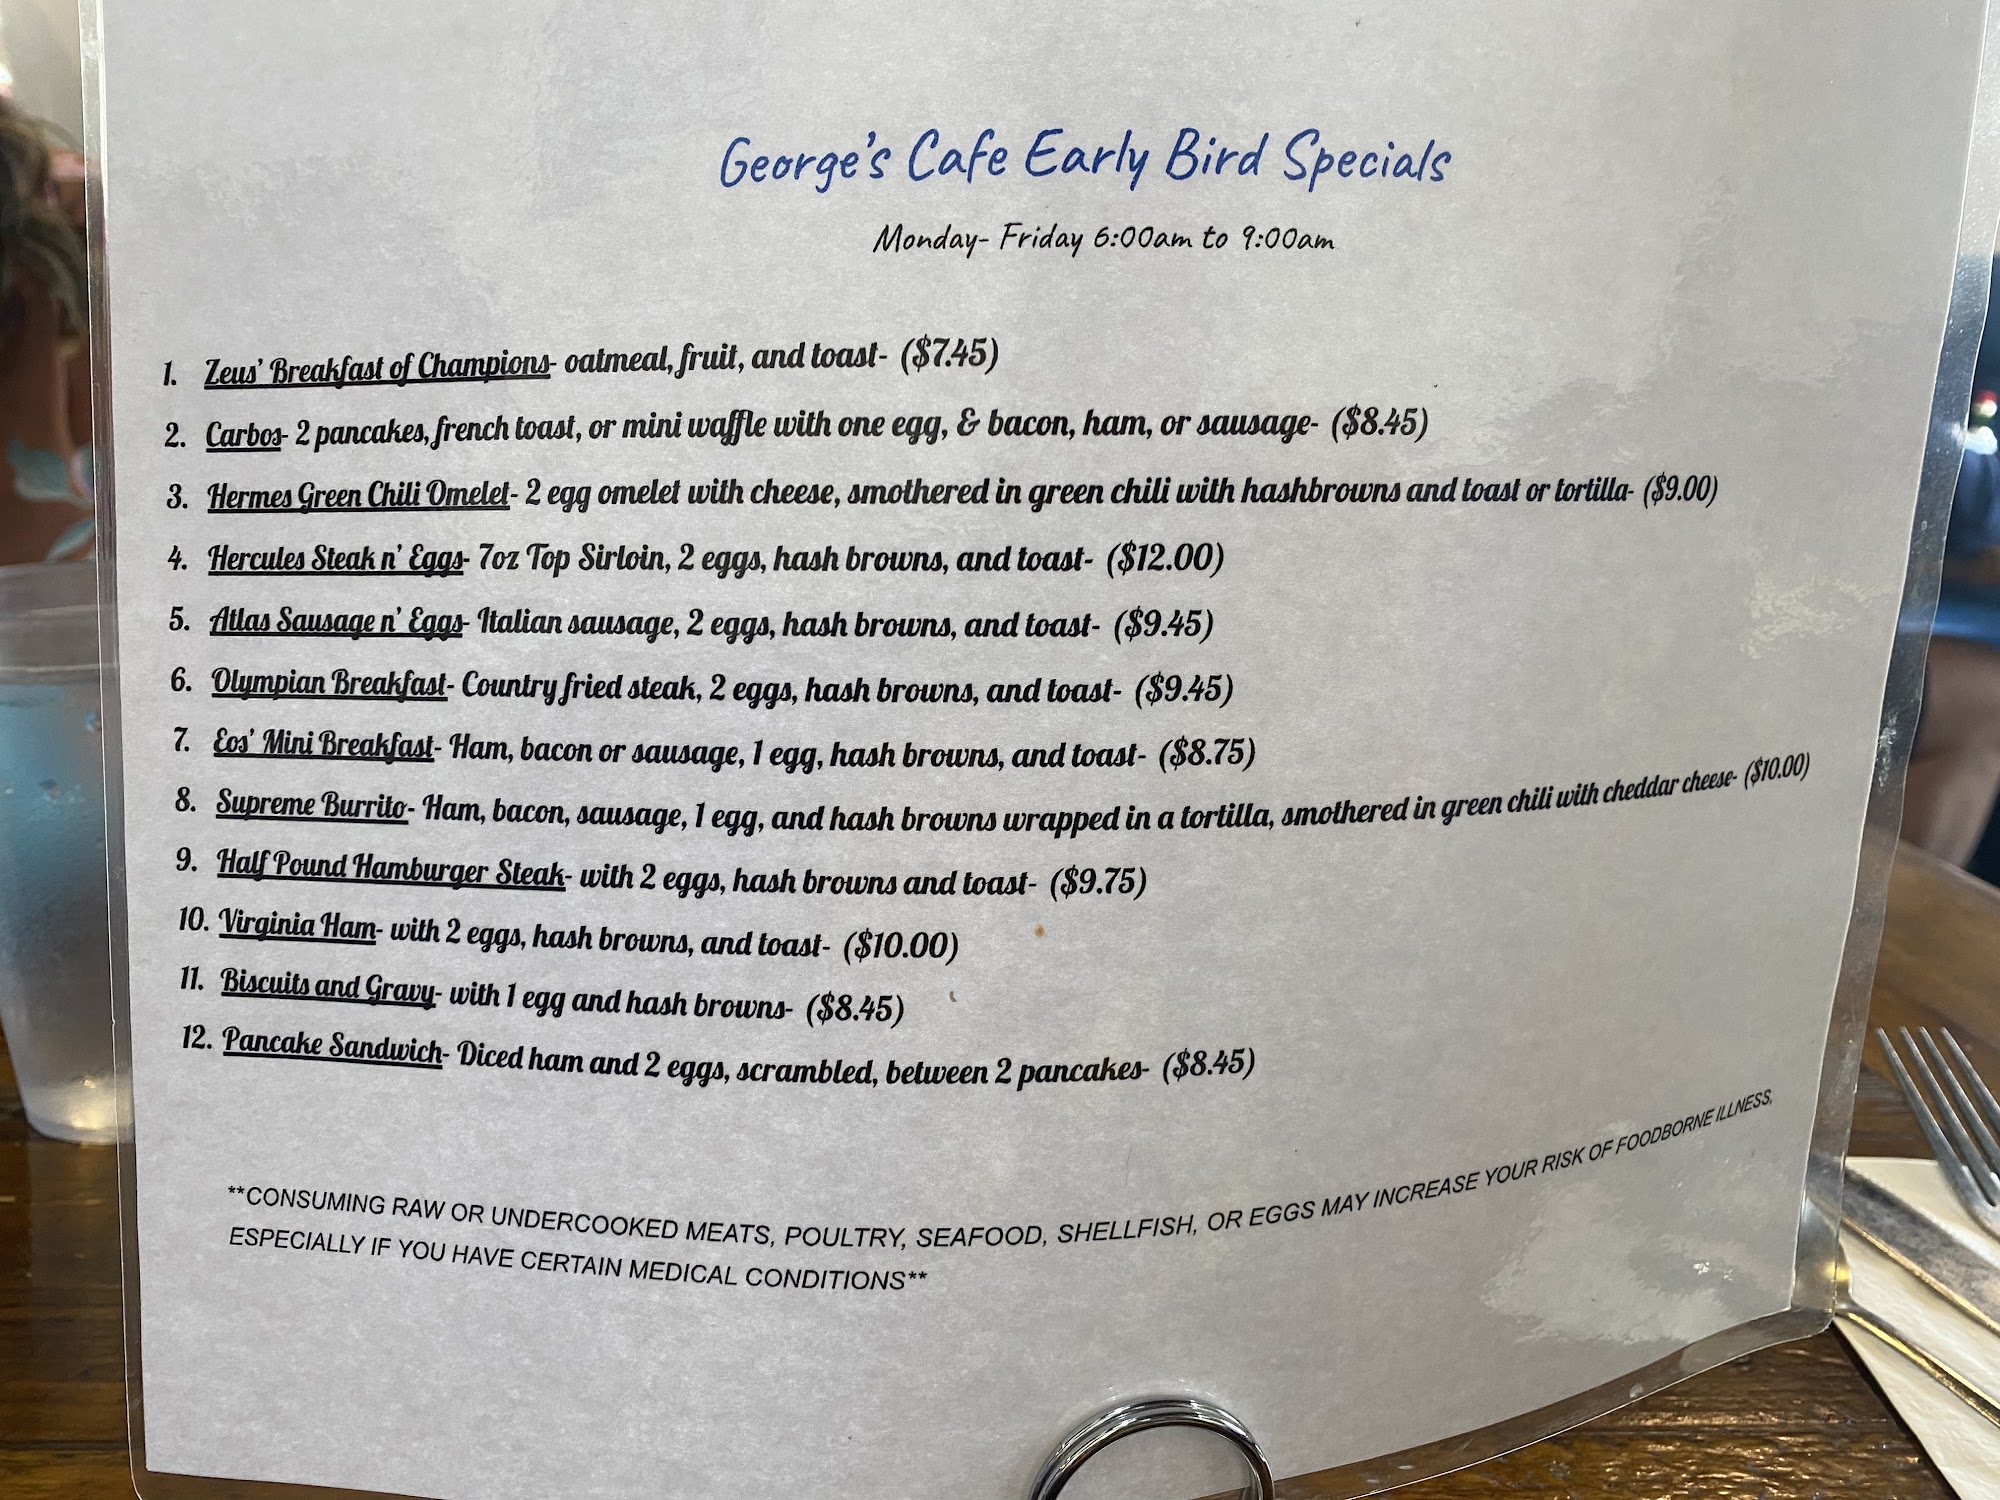 George's Cafe Early Bird Specials
Monday- Friday 6:00am to 9:00am
1. Zeus' Breakfast of Champions- oatmeal, fruit, and toast- ($7.45)
2. Carbos- 2 pancakes, french toast, or mini waffle with one egg, & bacon, ham, or sausage- ($8.45)
3. Hermes Green Chili Omelet- 2 egg omelet with cheese, smothered in green chili with hashbrowns and toast or tortilla- ($9.00)
4. Hercules Steak n' Eggs- 7oz Top Sirloin, 2 eggs, hash browns, and toast- ($12.00)
5. Atlas Sausage n' Eggs- Italian sausage, 2 eggs, hash browns, and toast- ($9.45)
6. Olympian Breakfast- Country fried steak, 2 eggs, hash browns, and toast- ($9.45)
7. Eos' Mini Breakfast- Ham, bacon or sausage, 1 egg, hash browns, and toast- ($8.75)
8. Supreme Burrito- Ham, bacon, sausage, 1 egg, and hash browns wrapped in a tortilla, smothered in green chili with cheddar cheese- ($10.00)
9. Half Pound Hamburger Steak- with 2 eggs, hash browns and toast- ($9.75)
10. Virginia Ham- with 2 eggs, hash browns, and toast- ($10.00)
11. Biscuits and Gravy- with 1 egg and hash browns- ($8.45)
12. Pancake Sandwich- Diced ham and 2 eggs, scrambled, between 2 pancakes- ($8.45)
**CONSUMING RAW OR UNDERCOOKED MEATS, POULTRY, SEAFOOD, SHELLFISH, OR EGGS MAY INCREASE YOUR RISK OF FOODBORNE ILLNESS,
ESPECIALLY IF YOU HAVE CERTAIN MEDICAL CONDITIONS**